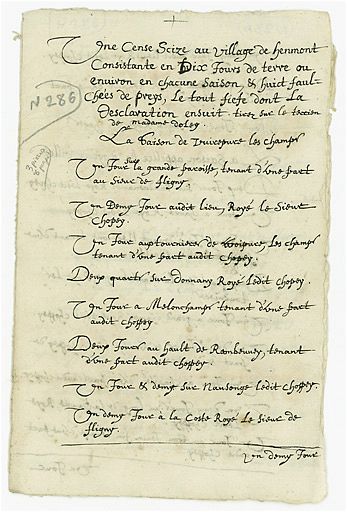 Une Cense Scize au village de henmont
Consistante en Dix Jours de terre ou
environ en chacune saison, & huict faul-
chées de preys, Le tout fiefe dont La
Desclaration ensuit. tirez sur le
de madame
N 286
La Saison de les champs
Un Jour sur la grande paroisse, tenant d'une part
au Sieur de fligny.
Un Demy Jour audit lieu, Royé le Sieur
Choppey.
Un Jour aux tourniers de les champs
tenant d'une part audit Choppey.
Deux quarts sur donnany Royé ledit Choppey.
Un Jour a Melonchamps tenant d'une part
audit Choppey.
Deux Jours au hault de Rambeuvey, tenant
d'une part audit Choppey.
Un Jour & demy sur Nausonge ledit Choppey.
Un demy Jour à la Coste Royé Le Sieur de
fligny.
Un demy Jour